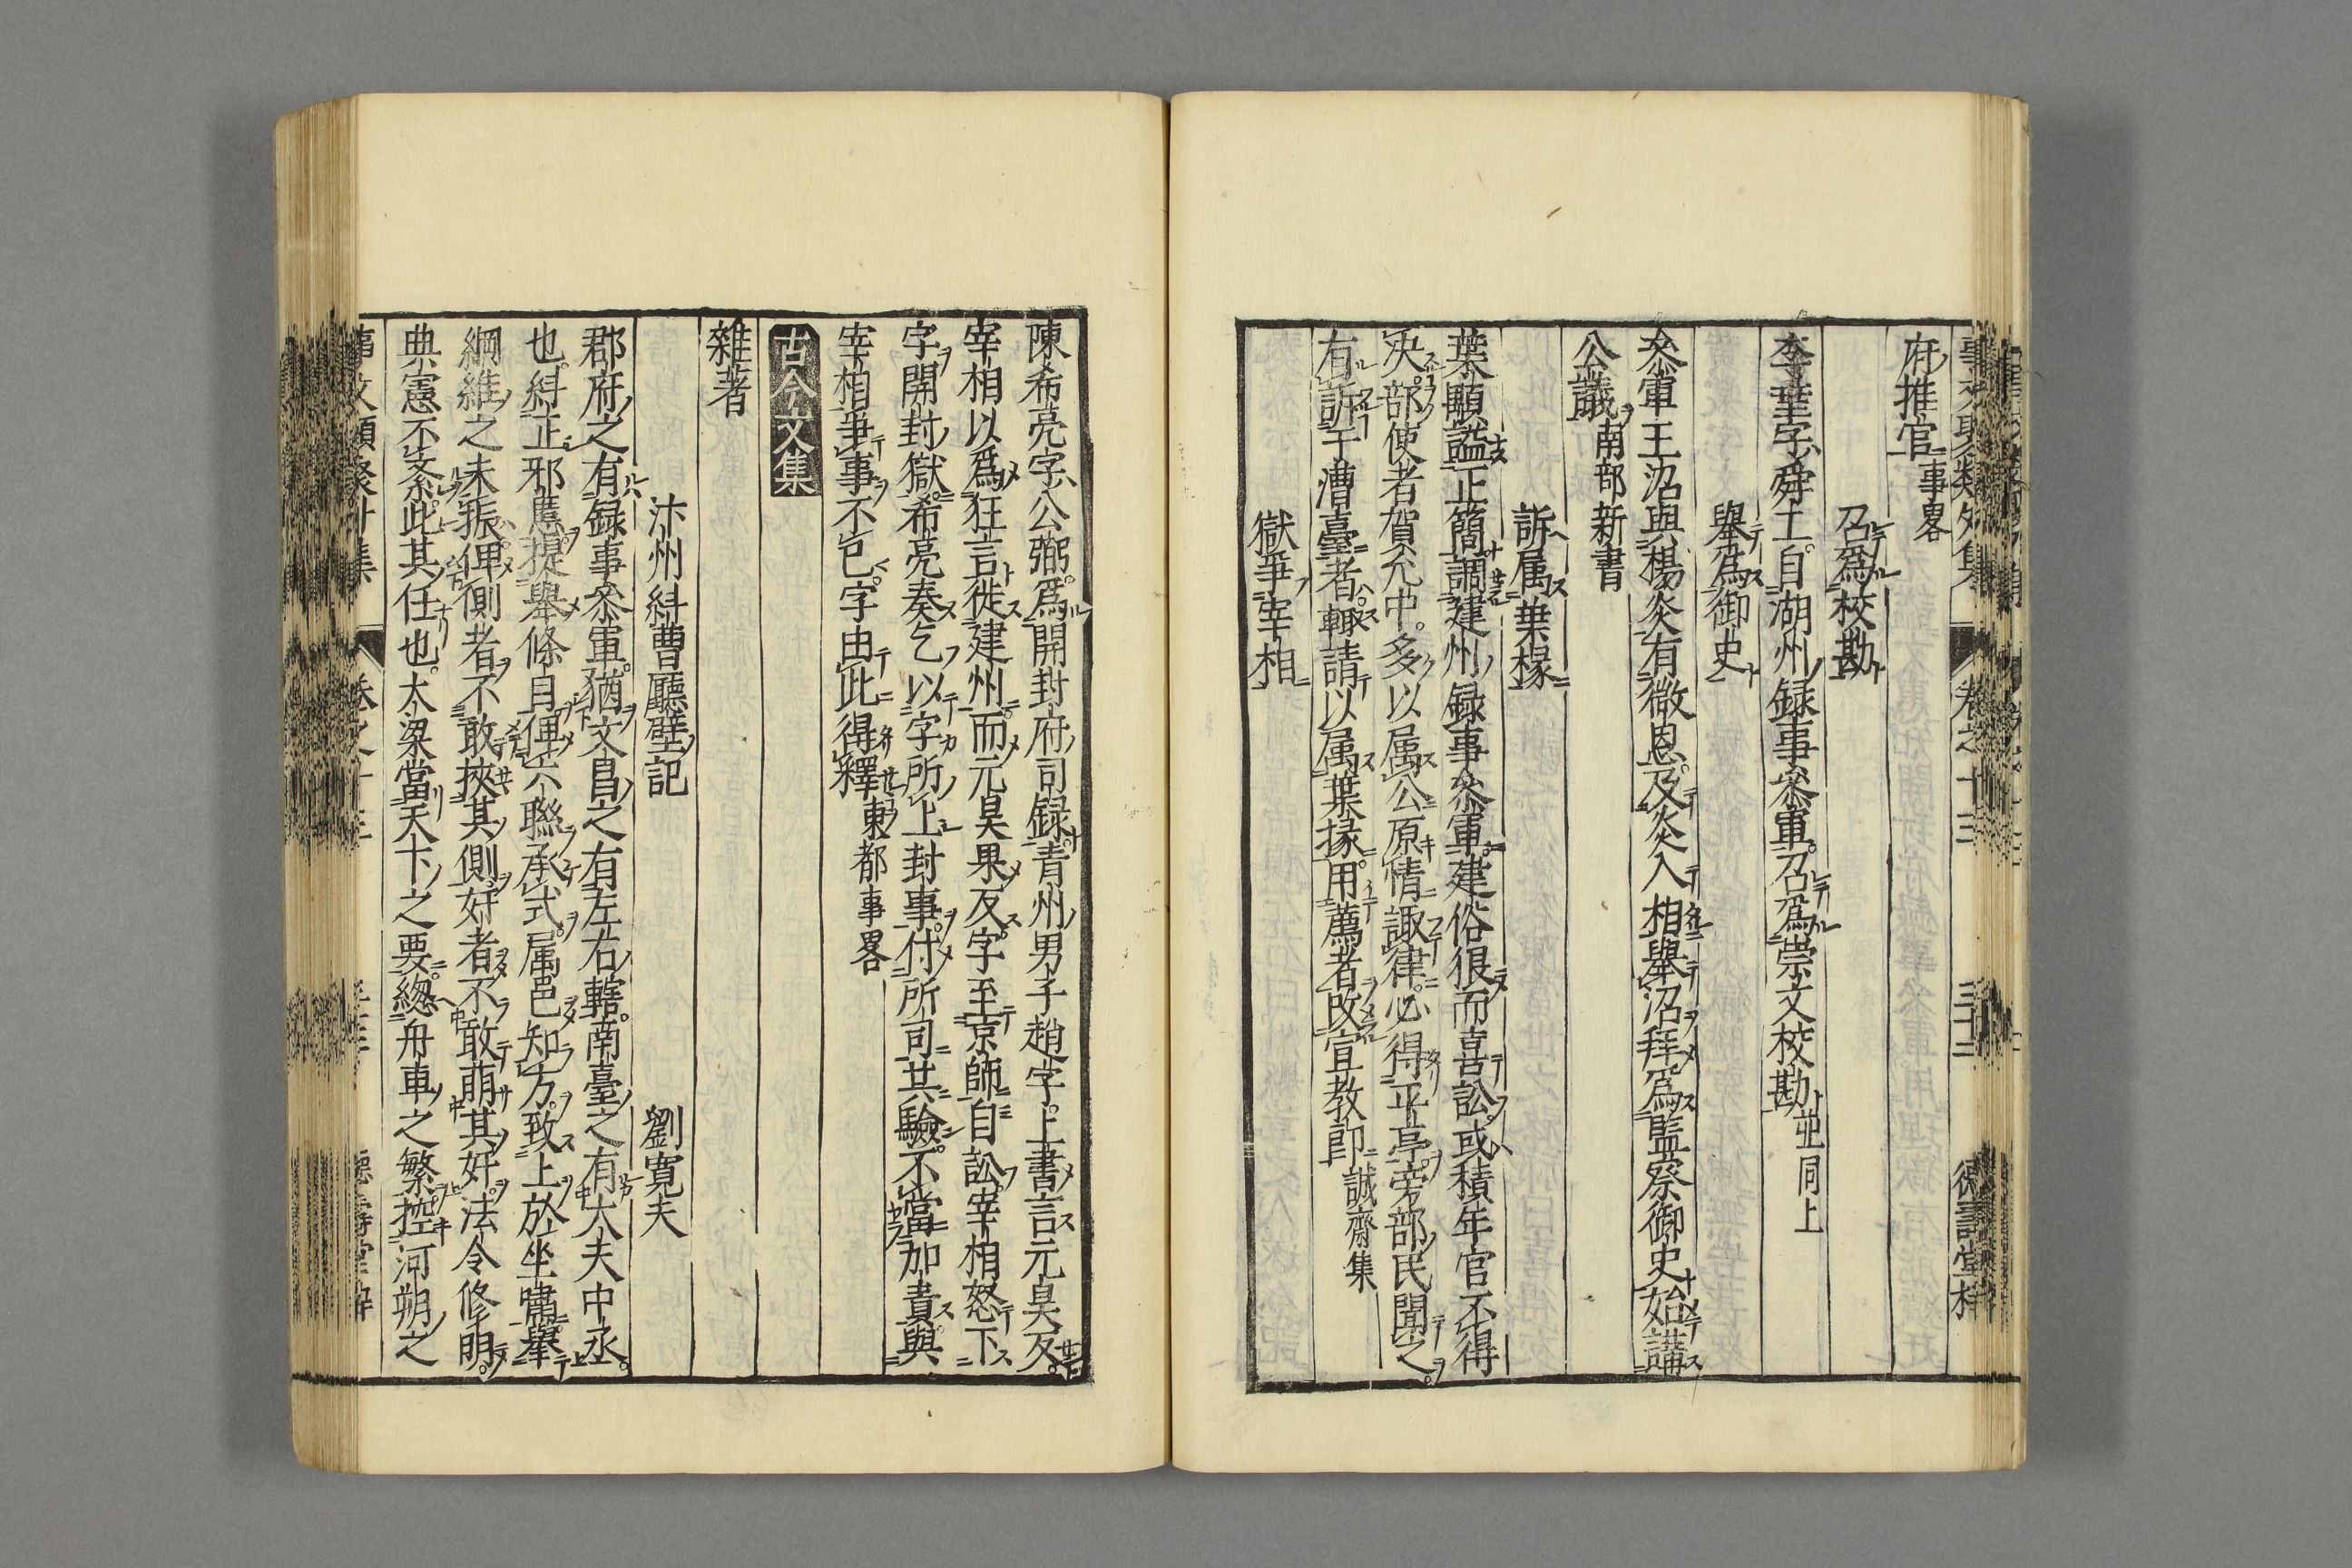 事文類聚外集 卷之十三 三十二 德壽堂梓
府推官事畧
召爲校勘
李埀字舜工自湖州録事叅軍召爲崇文校勘並同上
舉爲御史
叅軍王沼與楊炎有微恩及炎入相舉沼拜爲監察御史始講
公議南部新書
訴属葉椽
葉顒謚正簡調建州録事叅軍建俗很而喜訟或積年官不得
决部使者賀允中多以属公原情諏律必得平亭旁部民聞之
有訴于漕臺者輒請以属葉掾用薦者改宣教郎誠齋集
獄爭宰相
陳希亮字公弼爲開封府司録青州男子趙宇上書言元昊反
宰相以爲狂言徙建州而元昊果反宇至京師自訟宰相怒下
宇開封獄希亮奏乞以宇所上封事付所司其驗不當加責與
宰相爭事不已宇由此得釋東都事畧
古今文集
雜著
汴州紏曹廳壁記 劉寬夫
郡府之有録事叅軍猶文昌之有左右轄南臺之有大夫中丞
也紏正邪慝提舉條目俾六聯承式属邑知方致上於坐嘯舉
綱維之未振俾側者不敢挾其側奸者不敢萌其奸法令修明
典憲不紊此其任也大梁當天下之要緫舟車之繁控河朔之
事文類聚外集 卷之十三 德壽堂梓